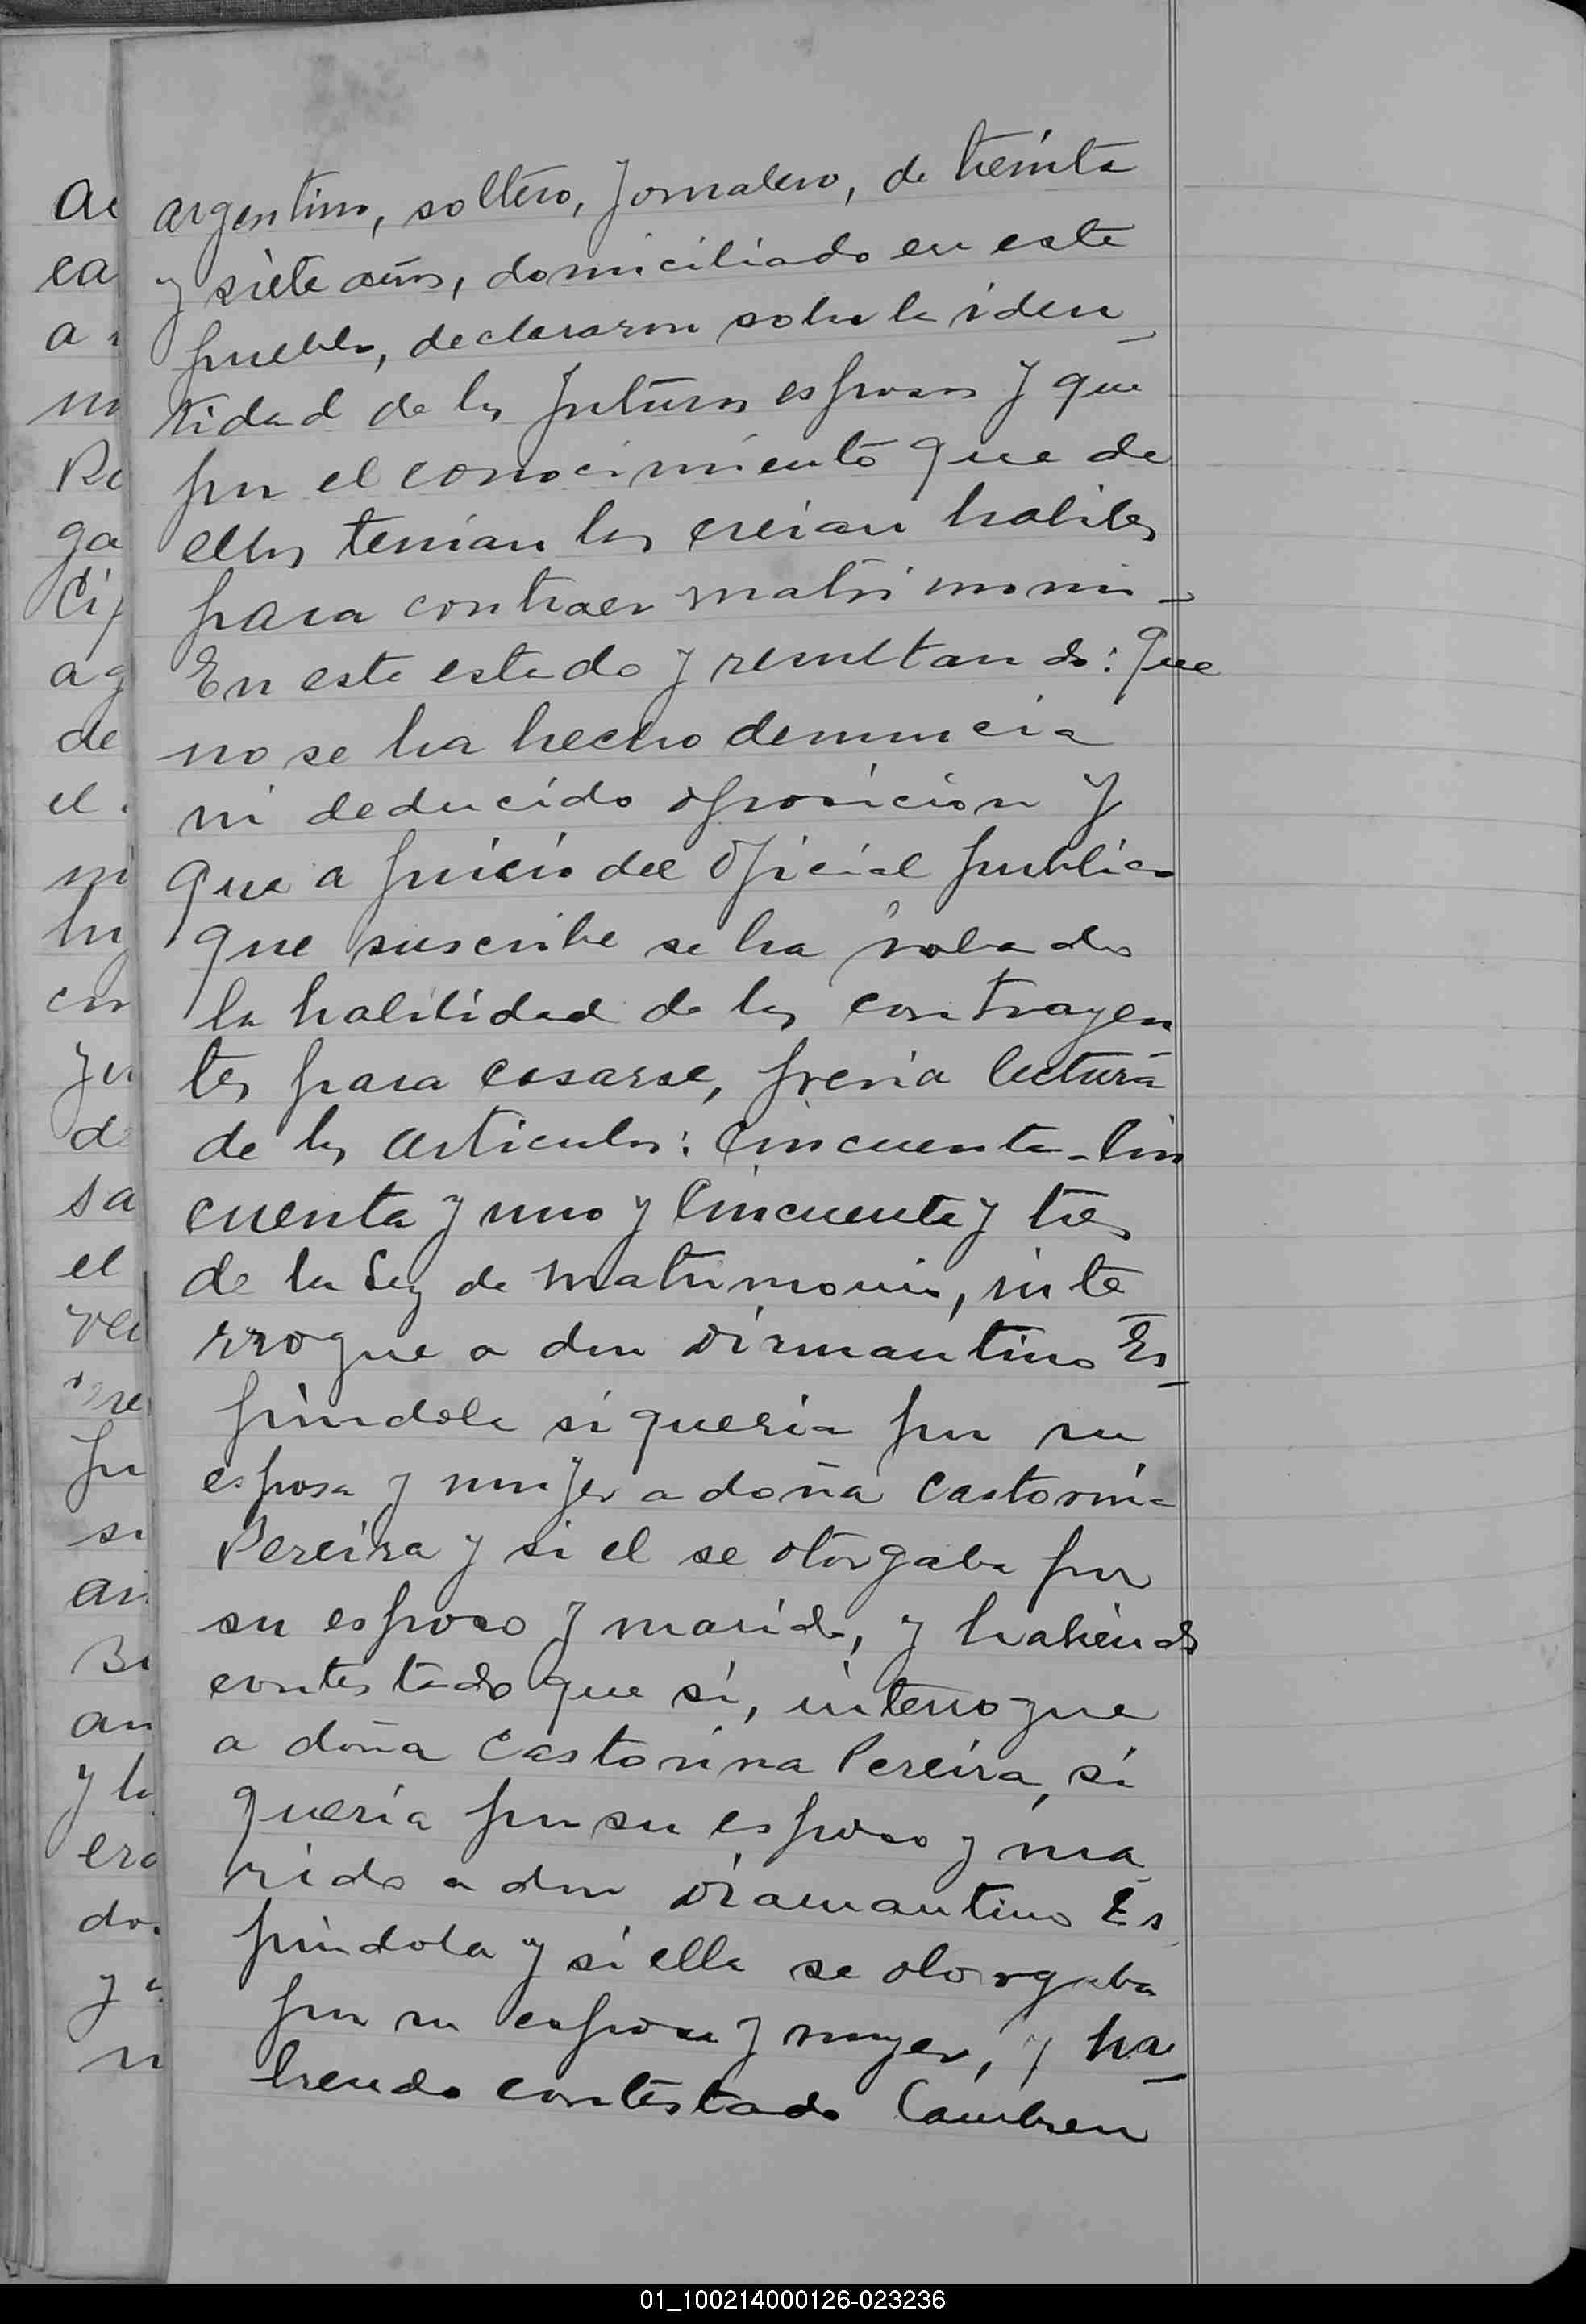 argentino, soltero, jornalero, de treinta
y siete años, domiciliado en este
pueblo, declararon sobre la iden
tidad de los futuros esposos y que
por el conocimiento que de
ellos tenian los creian habiles
para contraer matrimonio -
En este estado y resultando: que
no se ha hecho denuncia
ni deducido oposicion y
que a juicio del oficial publico
que suscribe se ha probado
la habilidad de los contrayen
tes para casarse, previa lectura
de los articulos: cincuenta - Cin
cuenta y uno y Cincuenta y tres
de la Ley de matrimonio, inte
rrogue a don Dirmantino Es
píndola si queria por su
esposa y mujer a doña Castorina
Pereira y si el se otorgaba por
su esposo y marido, y habiendo
contestado que si, interrogue
a doña Castorina Pereira, si
queria por su esposo y ma
rido a don Diamantino Es
píndola y si ella se otorgaba
por su esposa y mujer, y ha
biendo contestado tambien
01_100214000126-023236